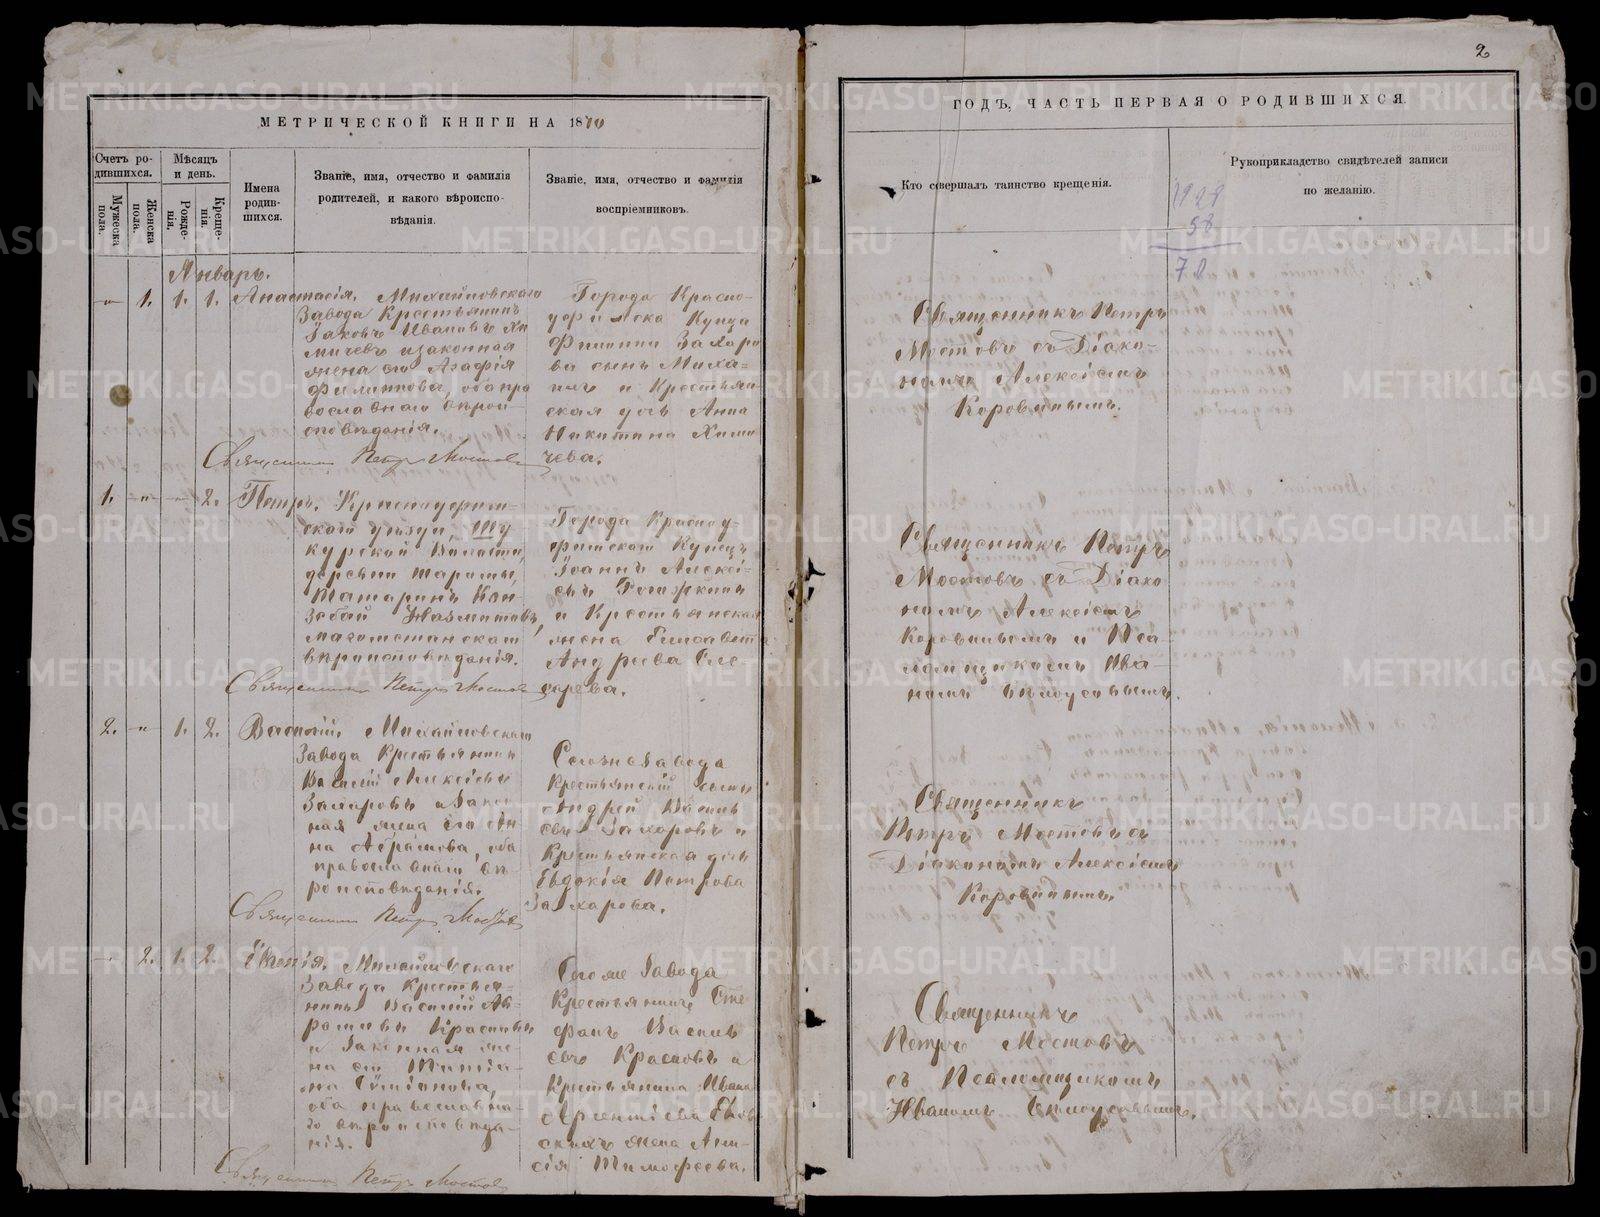 2
МЕТРИЧЕСКОЙ КНИГИ НА 1870
ГОДЪ, ЧАСТЬ ПЕРВАЯ О РОДИВШИХСЯ.
Счетъ ро-
дившихся.
Мужеска
пола.
Женска
пола.
Мѣсяцъ
и день.
Рожде-
нія.
Креще-
нія.
Имена
родив-
шихся.
Званіе, имя, отчество и фамилія
родителей, и какого вѣроиспо-
вѣданія.
Званіе, имя, отчество и фамилія
воспріемниковъ.
Кто совершалъ таинство крещенія.
Рукоприкладство свидѣтелей записи
по желанію.
1928
58
70
Январь.
1. 1. 1. Анастасія. Михайловскаго
Завода Крестьянинъ
Іаковъ Ивановъ Хи
мичевъ и законная
жена его Агафія
Филиппова, оба пра
вославнаго вѣрои-
сповѣданія.
Священникъ Петръ Мостовъ
Города Красно-
уфимска Купца
Филиппа Захаро
ва сынъ Миха-
илъ и Крестьян
ская дочь Анна
Никитина Хими
чева.
Священникъ Петръ
Мостовъ съ Діако-
номъ Алексіемъ
Коровинымъ.
1. 2. Петръ. Красноуфим-
скаго уѣзда,
курской Волости,
деревни
Татаринъ
магометанскаго
вѣроисповѣданія.
Священникъ Петръ Мостовъ
Города Красноу-
фимскаго Купецъ
Іоаннъ Алексі-
евъ
и Крестьянская
жена Елисавета
Андреева Сле
сарева.
Священникъ Петръ
Мостовъ съ Діако
номъ Алексіемъ
Коровинымъ и Пса-
ломщикомъ Ива-
номъ Бѣлоусовымъ.
2. 1. 2. Василій. Михайловскаго
Завода Крестьянинъ
Василій Алексіевъ
Захаровъ и Закон
ная жена его Ан
на Абрамова, оба
православнаго вѣ
роисповѣданія.
Священникъ Петръ Мостовъ
Завода
Крестьянскій сынъ
Андрей Василь
евъ Захаровъ и
Крестьянская дочь
Евдокія Петрова
Захарова.
Священникъ
Петръ Мостовъ съ
Діакономъ Алексіемъ
Коровинымъ.
2. 1. 2. Михайловскаго
Завода Крестья-
нинъ Василій Ав-
и Законная же-
на его Татія-
на
оба православна-
го вѣроисповѣда-
нія.
Священникъ Петръ Мостовъ
Завода
Крестьянинъ Сте
фанъ Василь
евъ Красновъ и
Крестьянина Ивана
Арсентіева
скихъ жена
Тимофеева.
Священникъ
Петръ Мостовъ
съ Псаломщикомъ
Иваномъ Бѣлоусовымъ.
METRIKI.GASO-URAL.RU